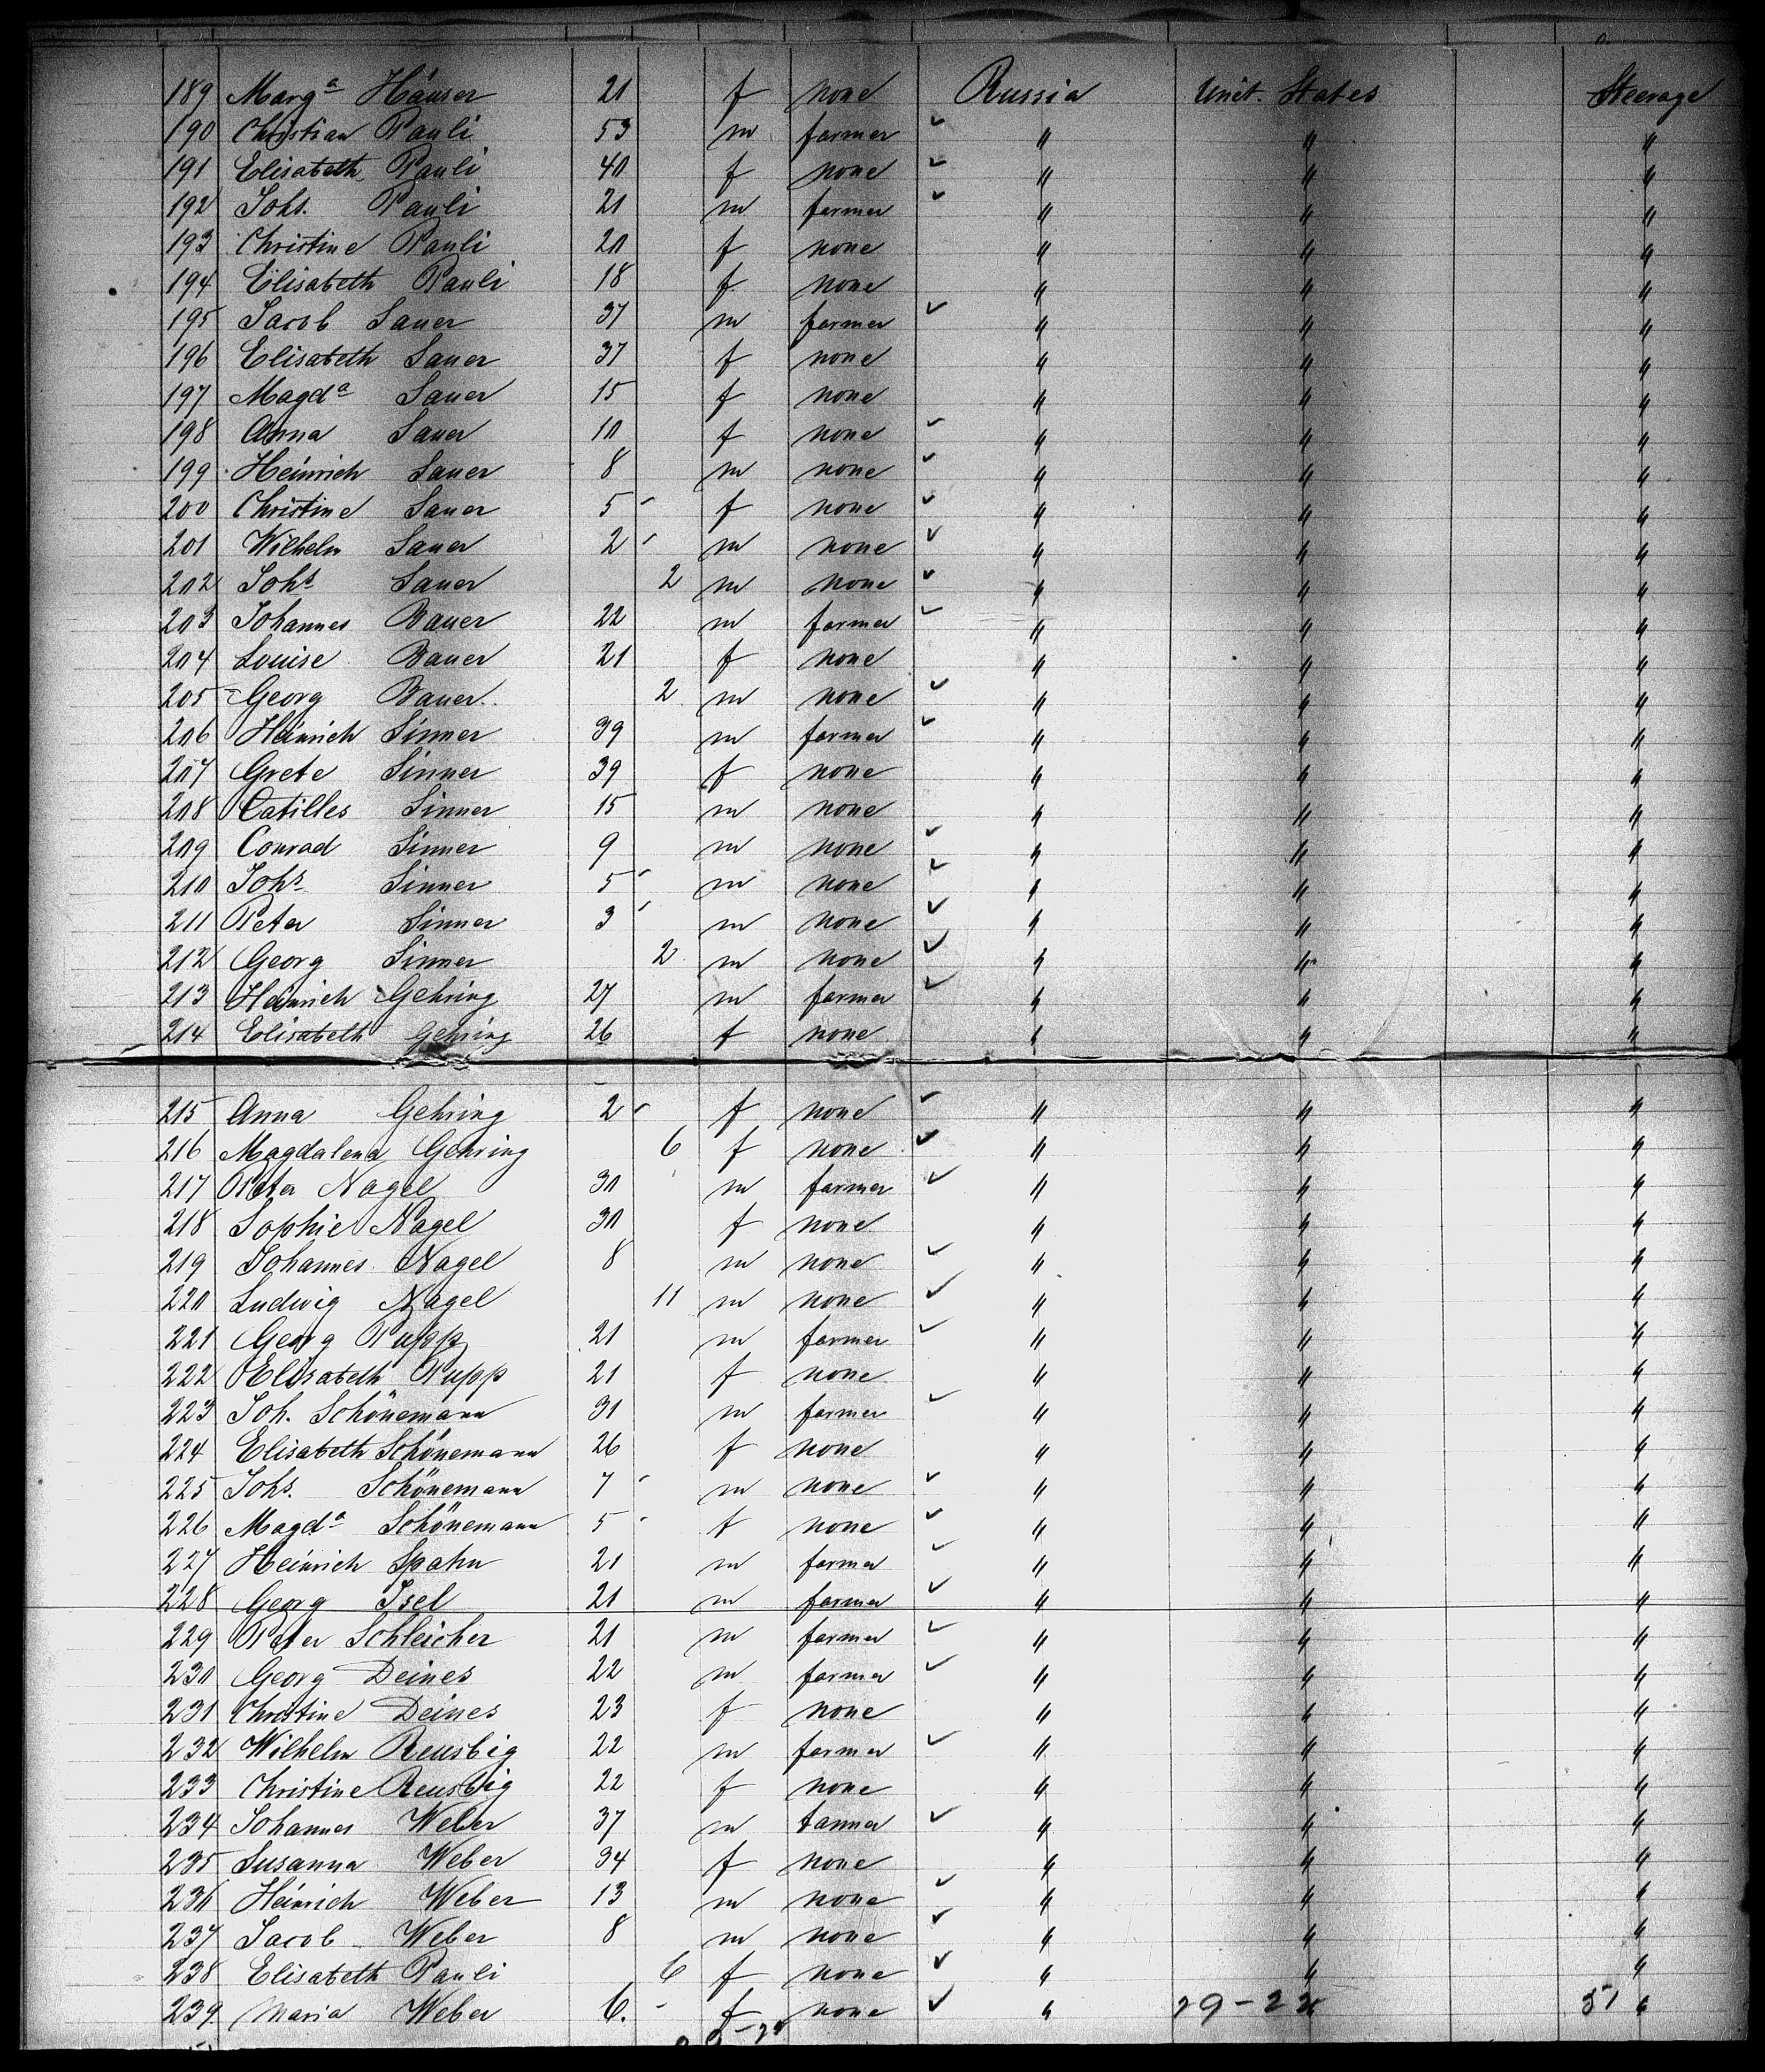 189 Marg<sup>a</sup> Häuser 21 f none Russia Unit. States Steerage
190 Christian Pauli 53 m farmer ✓ " " "
191 Elisabeth Pauli 40 f none ✓ " " "
192 Johs. Pauli 21 m farmer ✓ " " "
193 Christine Pauli 20 f none " " "
194 Elisabeth Pauli 18 f none " " "
195 Jacob Sauer 37 m farmer ✓ " " "
196 Elisabeth Sauer 37 f none " " "
197 Magd<sup>a</sup> Sauer 15 f none " " "
198 Anna Sauer 10 f none ✓ " " "
199 Heinrich Sauer 8 m none ✓ " " "
200 Christine Sauer 5 f none ✓ " " "
201 Wilhelm Sauer 2 m none ✓ " " "
202 Joh<sup>s</sup> Sauer 2 m none ✓ " " "
203 Johannes Bauer 22 m farmer ✓ " " "
204 Louise Bauer 21 f none " " "
205 Georg Bauer 2 m none ✓ " " "
206 Heinrich Sinner 39 m farmer ✓ " " "
207 Grete Sinner 39 f none " " "
208 Catilles Sinner 15 m none " " "
209 Conrad Sinner 9 m none ✓ " " "
210 Joh<sup>s</sup> Sinner 5 m none ✓ " " "
211 Peter Sinner 3 m none ✓ " " "
212 Georg Sinner 2 m none ✓ " " "
213 Heinrich Gehring 27 m farmer ✓ " " "
214 Elisabeth Gehring 26 f none " " "
215 Anna Gehring 2 f none ✓ " " "
216 Magdalena Gehring 6 f none ✓ " " "
217 Peter Nagel 30 m farmer ✓ " " "
218 Sophie Nagel 30 f none " " "
219 Johannes Nagel 8 m none ✓ " " "
220 Ludwig Nagel 11 m none ✓ " " "
221 Georg Rupp 21 m farmer ✓ " " "
222 Elisabeth Rupp 21 f none " " "
223 Joh. Schönemann 31 m farmer ✓ " " "
224 Elisabeth Schönemann 26 f none " " "
225 Johs. Schönemann 7 m none ✓ " " "
226 Magd<sup>a</sup> Schönemann 5 f none ✓ " " "
227 Heinrich Spahn 21 m farmer ✓ " " "
228 Georg Isel 21 m farmer ✓ " " "
229 Peter Schleicher 21 m farmer ✓ " " "
230 Georg Deines 22 m farmer ✓ " " "
231 Christine Deines 23 f none " " "
232 Wilhelm Reusbig 22 m farmer ✓ " " "
233 Christine Reusbig 22 f none " " "
234 Johannes Weber 37 m tanner ✓ " " "
235 Susanna Weber 34 f none " " "
236 Heinrich Weber 13 m none ✓ " " "
237 Jacob Weber 8 m none ✓ " " "
238 Elisabeth Pauli 6 f none ✓ " " "
239. Maria Weber 6. f none ✓ " 29-22 " 51 "